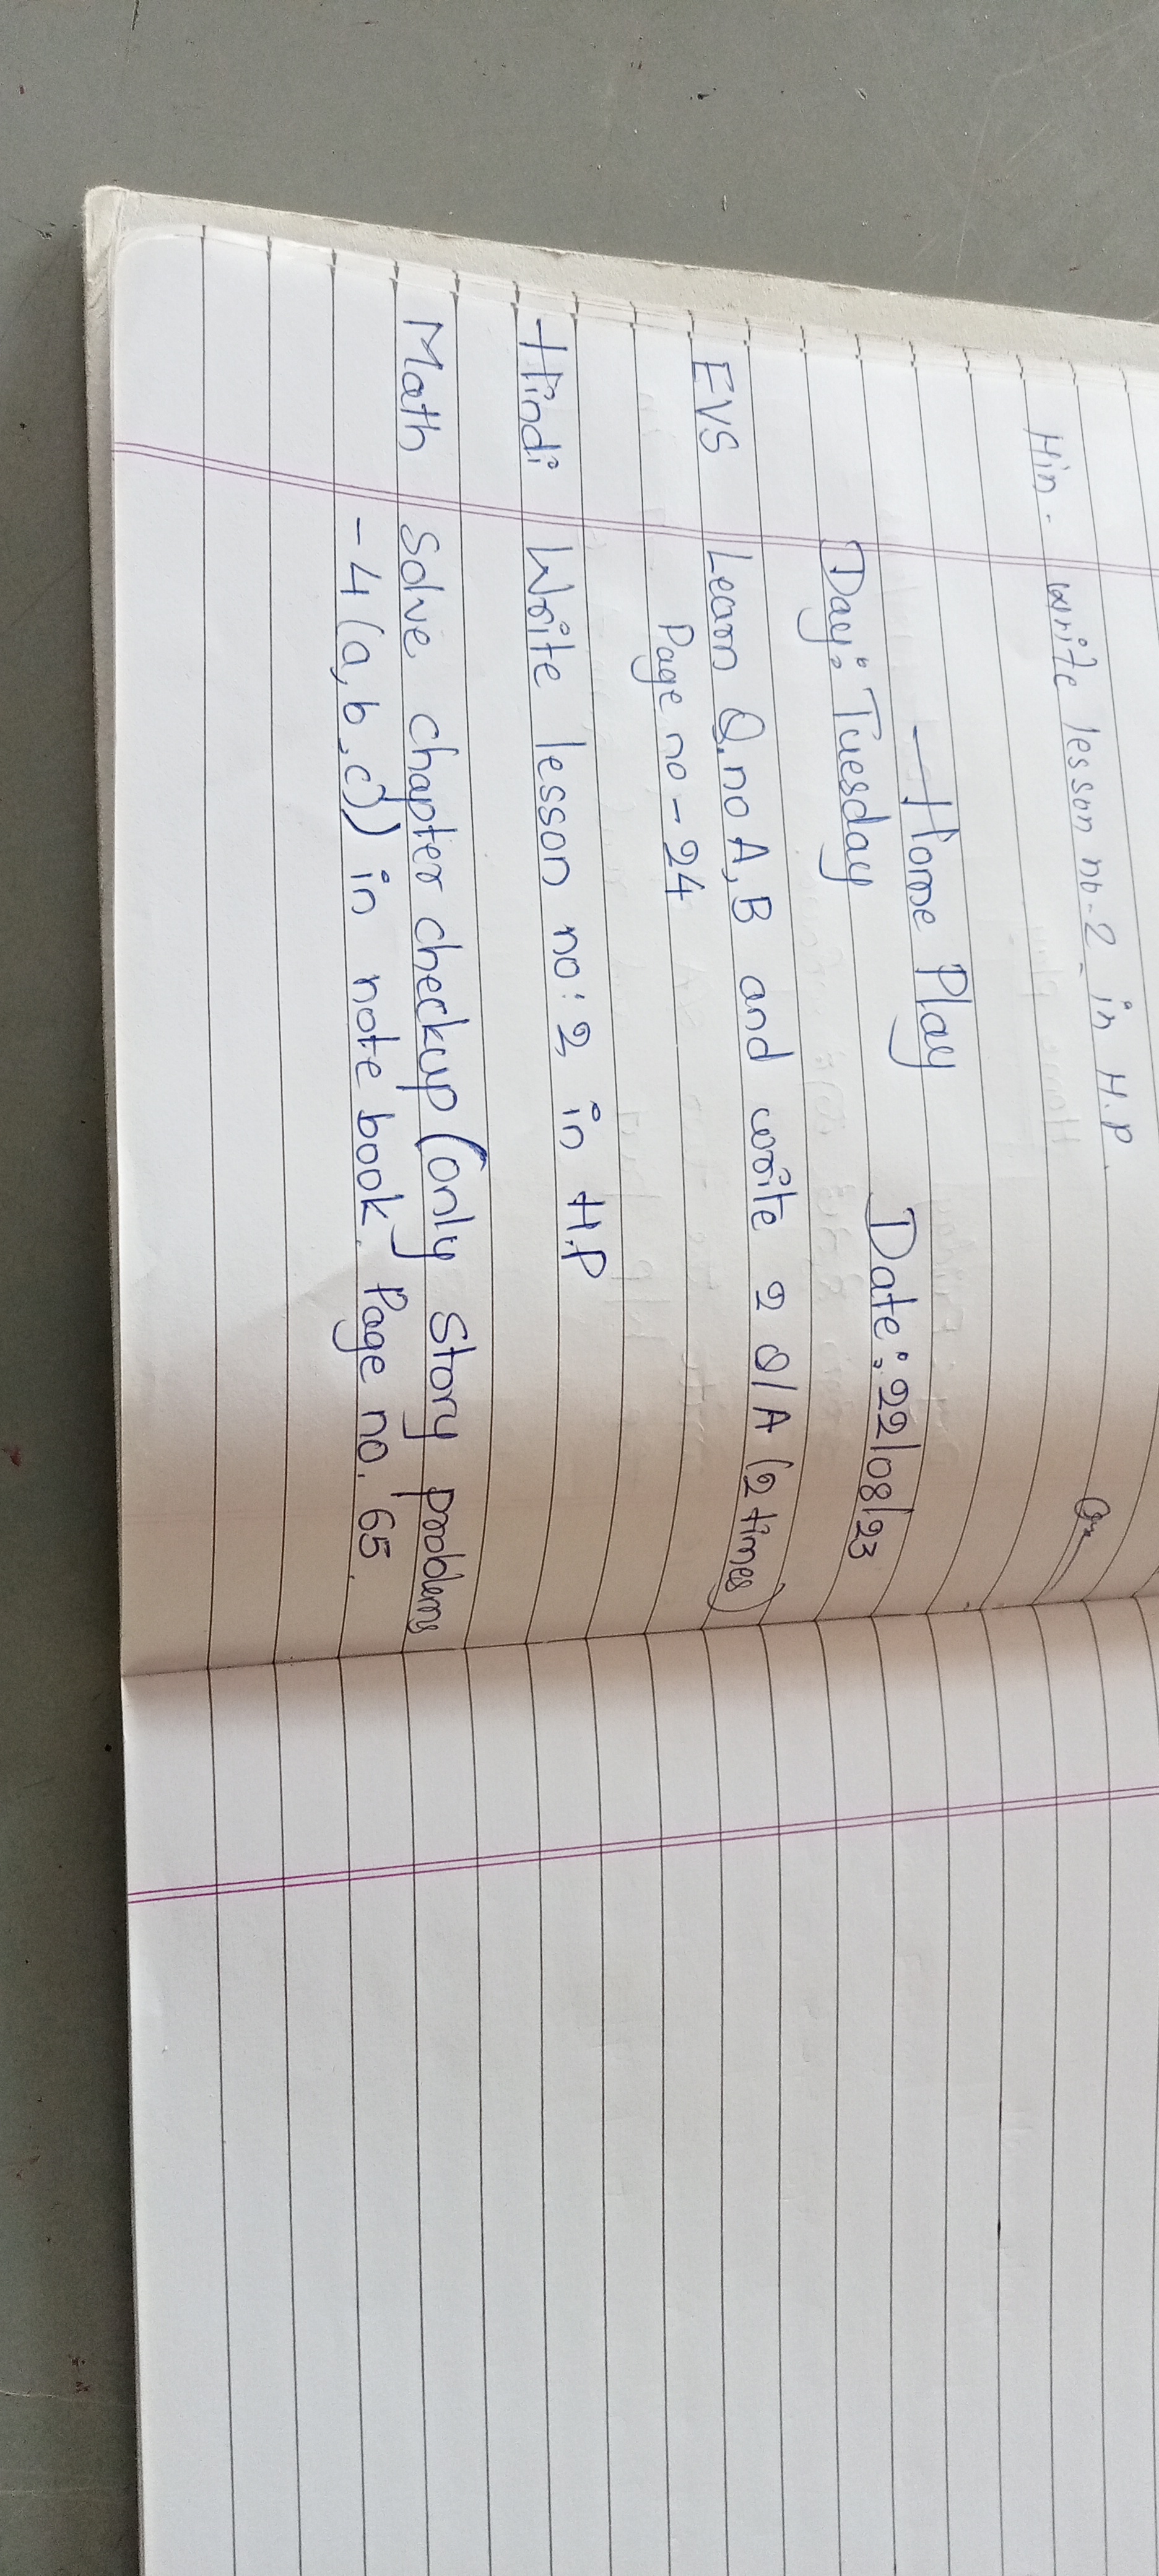 Hin - write lesson no-2 in H.P.
Home Play
Day: Tuesday Date: 22/08/23
EVS Learn Q.no A, B and write 2 Q/A (2 times)
Page no - 24
Hindi Write lesson no: 2 in H.P
Math Solve chapter checkup (only story problems
- 4 (a, b, c)) in note book. Page no. 65.